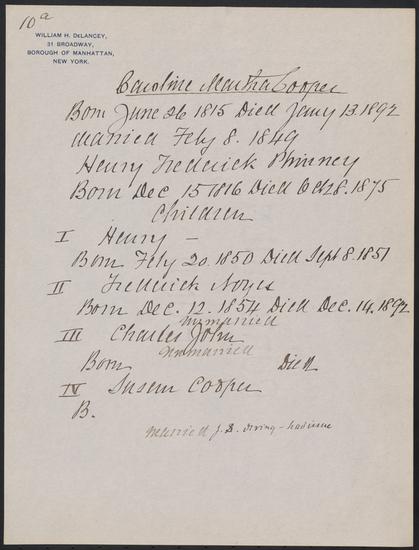 10a
WILLIAM H. DeLANCEY,
31 BROADWAY,
BOROUGH OF MANHATTAN,
NEW YORK.
Caroline Martha Cooper
Born June 26 1815 Died Jany 13. 1892
married Feby 8. 1849
Henry Frederick Phinney
Born Dec 15 1816 Died Oct 28. 1875
Children
I Henry —
Born Feby 20. 1850 Died Sept 8. 1851
II Frederick Noyes
Born Dec. 12. 1854 Died Dec. 14. 1892
unmarried
III Charles John
unmarried
Born Died
IV Susan Cooper
B.
married J. B. Irving